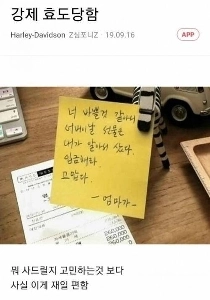 강제 효도당함
Harley-Davidson Z심포니Z · 19.09.16
APP
너 바쁠것 같아서
어버이날 선물은
내가 알아서 샀다.
입금해라.
고맙다.
- 엄마가 -
뭐 사드릴지 고민하는것 보다
사실 이게 재일 편함